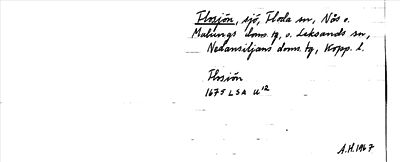 Flosjön, sjö, Floda sn, Nås o.
Malungs doms. tg, o. Leksands sn,
Nedansiljans doms. tg, Kopp. l.
Flosiön
1675 LSA U 12
A.H. 1967